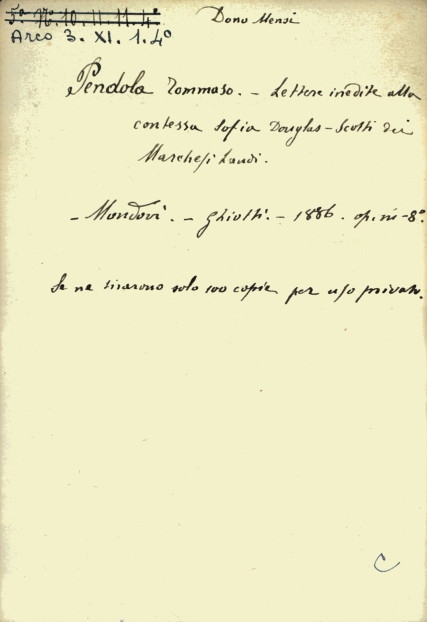 5ª Nº 10. 11. 11. 4º
Dono Mensi
Arco 3. XI. 1. 4º
Pendola Tommaso. – Lettere inedite alla
contessa Sofia Douglas-Scotti dei
Marchesi Landi.
– Mondovì. – Ghiotti. – 1886. op. in-8º.
Se ne tirarono solo 100 copie per uso privato.
C